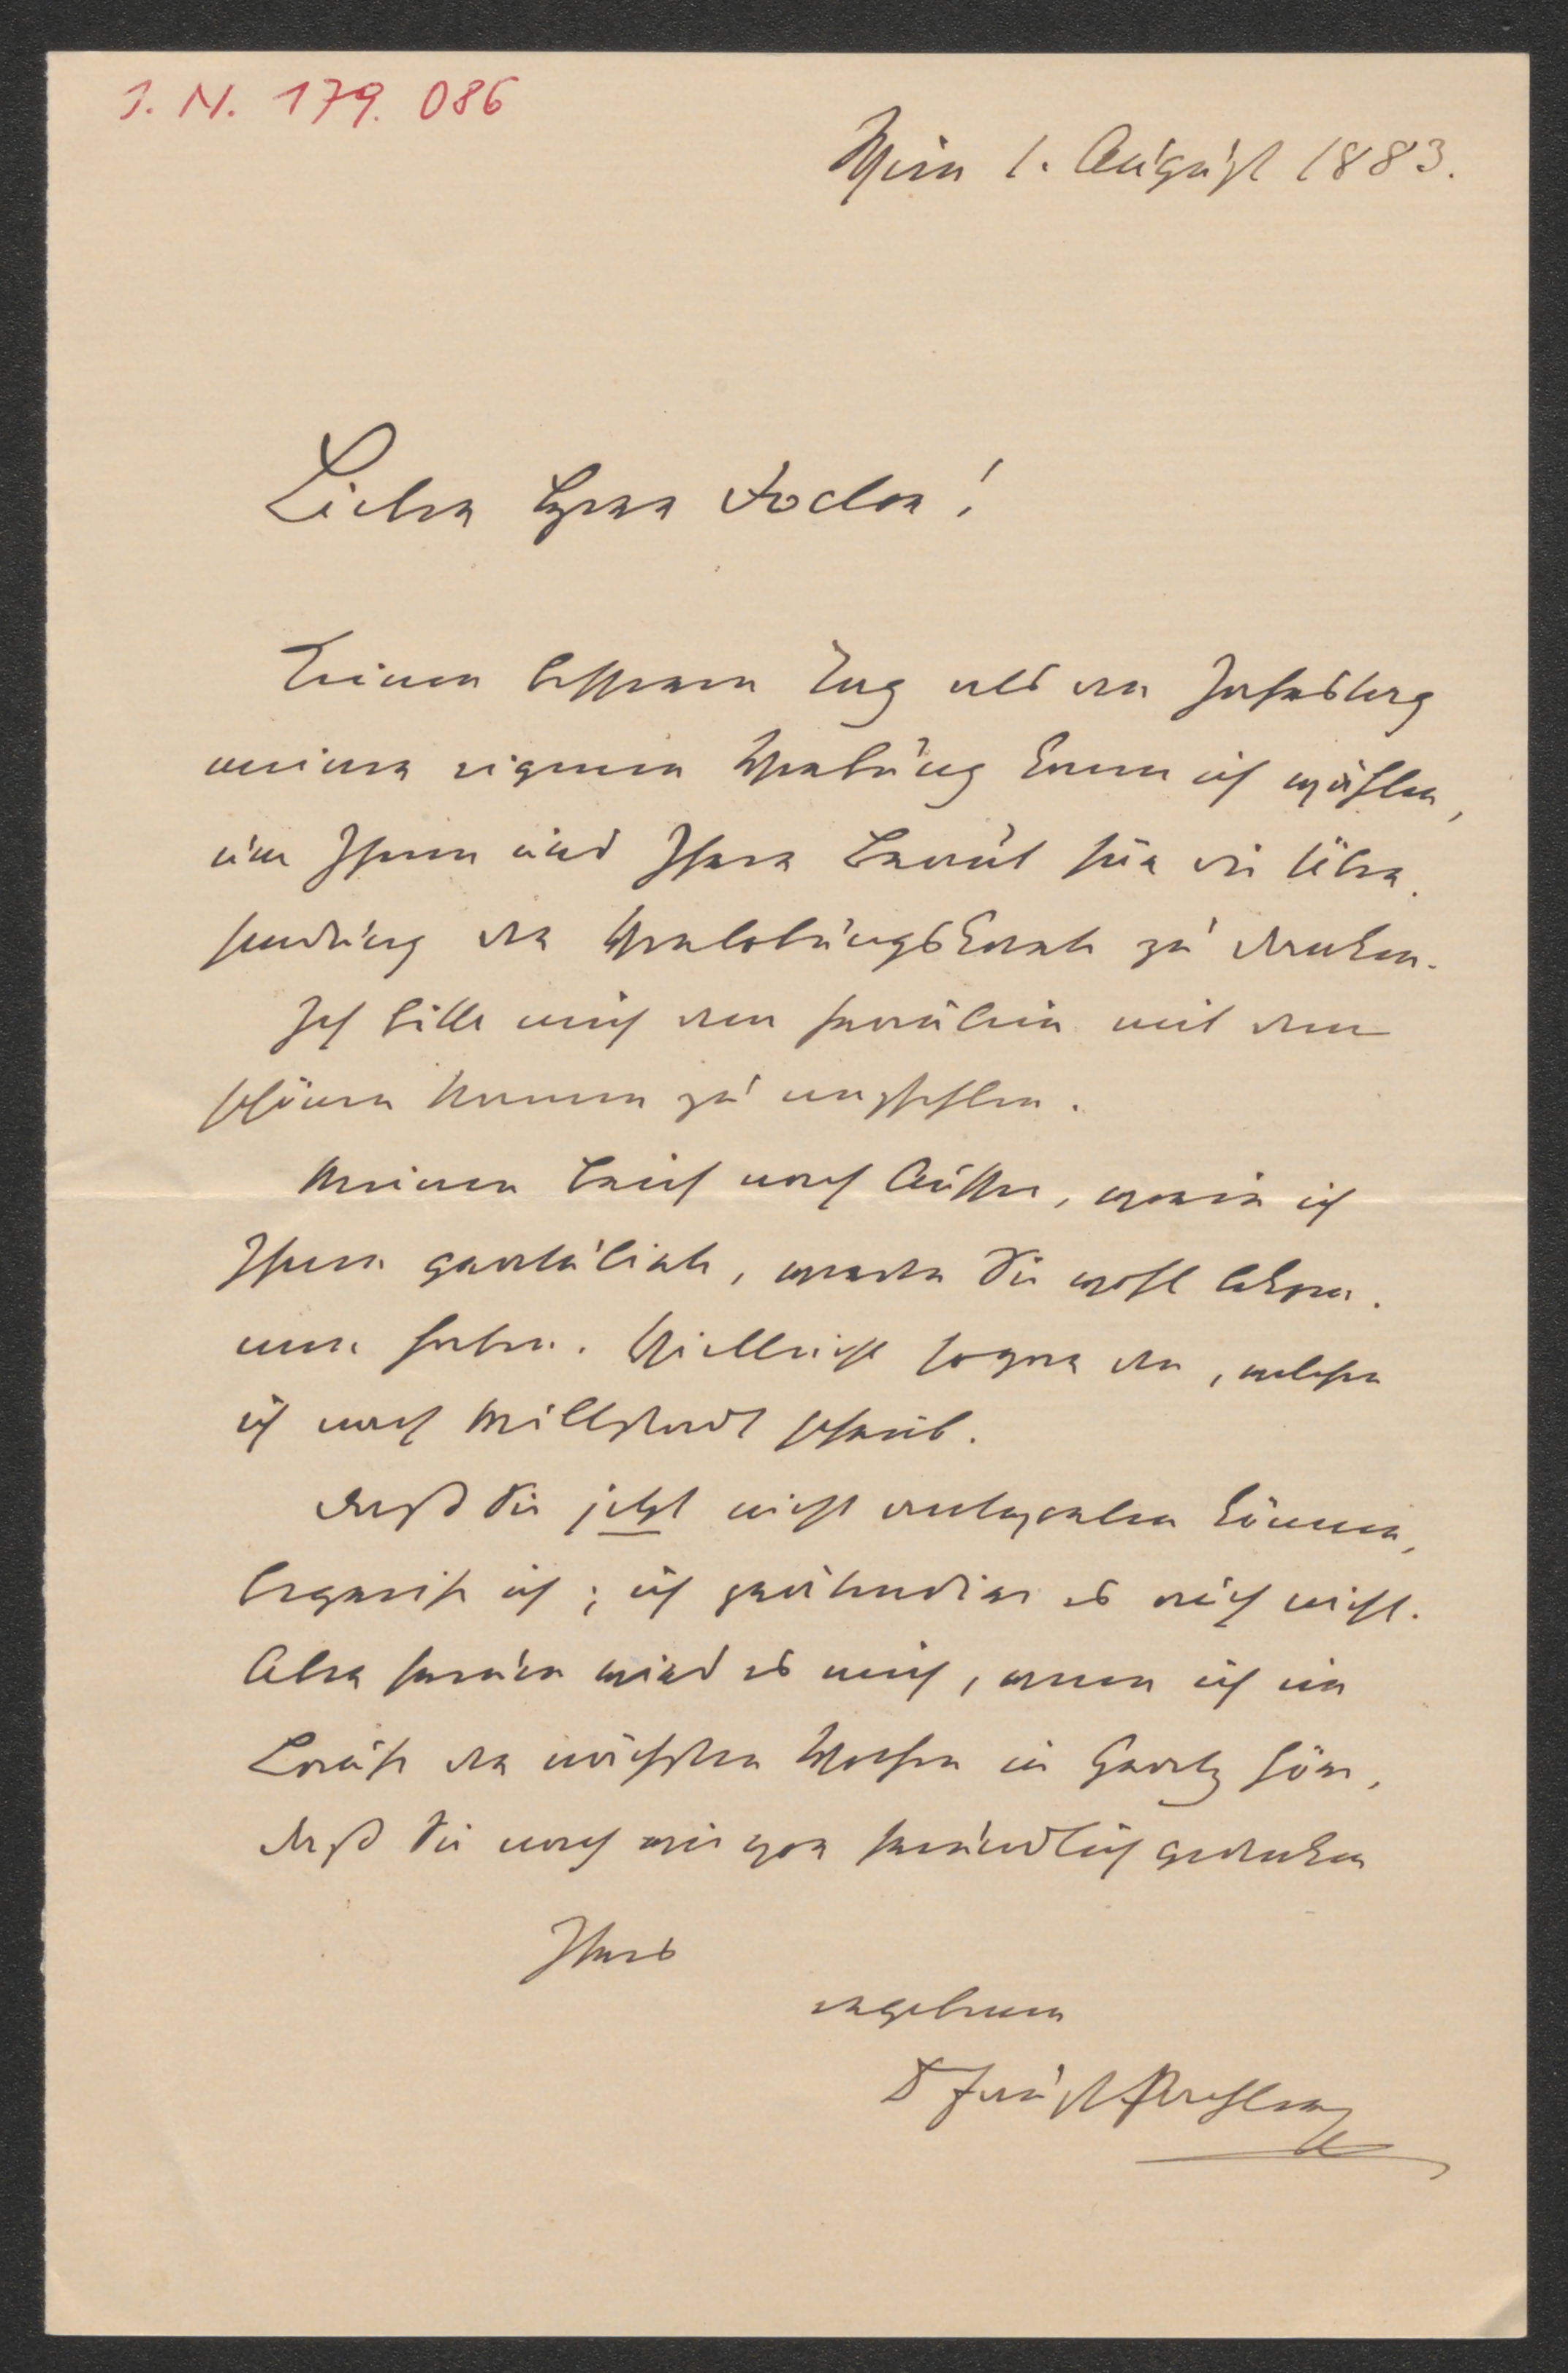 I. N. 179.086
Wien 1. August 1883.
Lieber Herr Doctor!
Keinen besseren Tag als den Jahrestag
meiner eigenen Werbung kann ich wählen,
um Ihnen und Ihrer Braut für die Über-
sendung der Verlobungskarte zu danken.
Ich bitte mich dem Fräulein mit dem
schönen Namen zu empfehlen.
Meinen Brief nach Aussee, worin ich
Ihnen gratulirte, werden Sie wohl bekom-
men haben. Vielleicht sogar den, welchen
ich nach Millstadt schrieb.
Daß Sie jetzt nicht antworten können,
begreife ich; ich prätendire es auch nicht.
Aber freuen wird es mich, wenn ich im
Laufe der nächsten Wochen in Gratz höre,
daß Sie nach wie vor freundlich gedenken
Ihres
ergebenen
D Faust Pachler